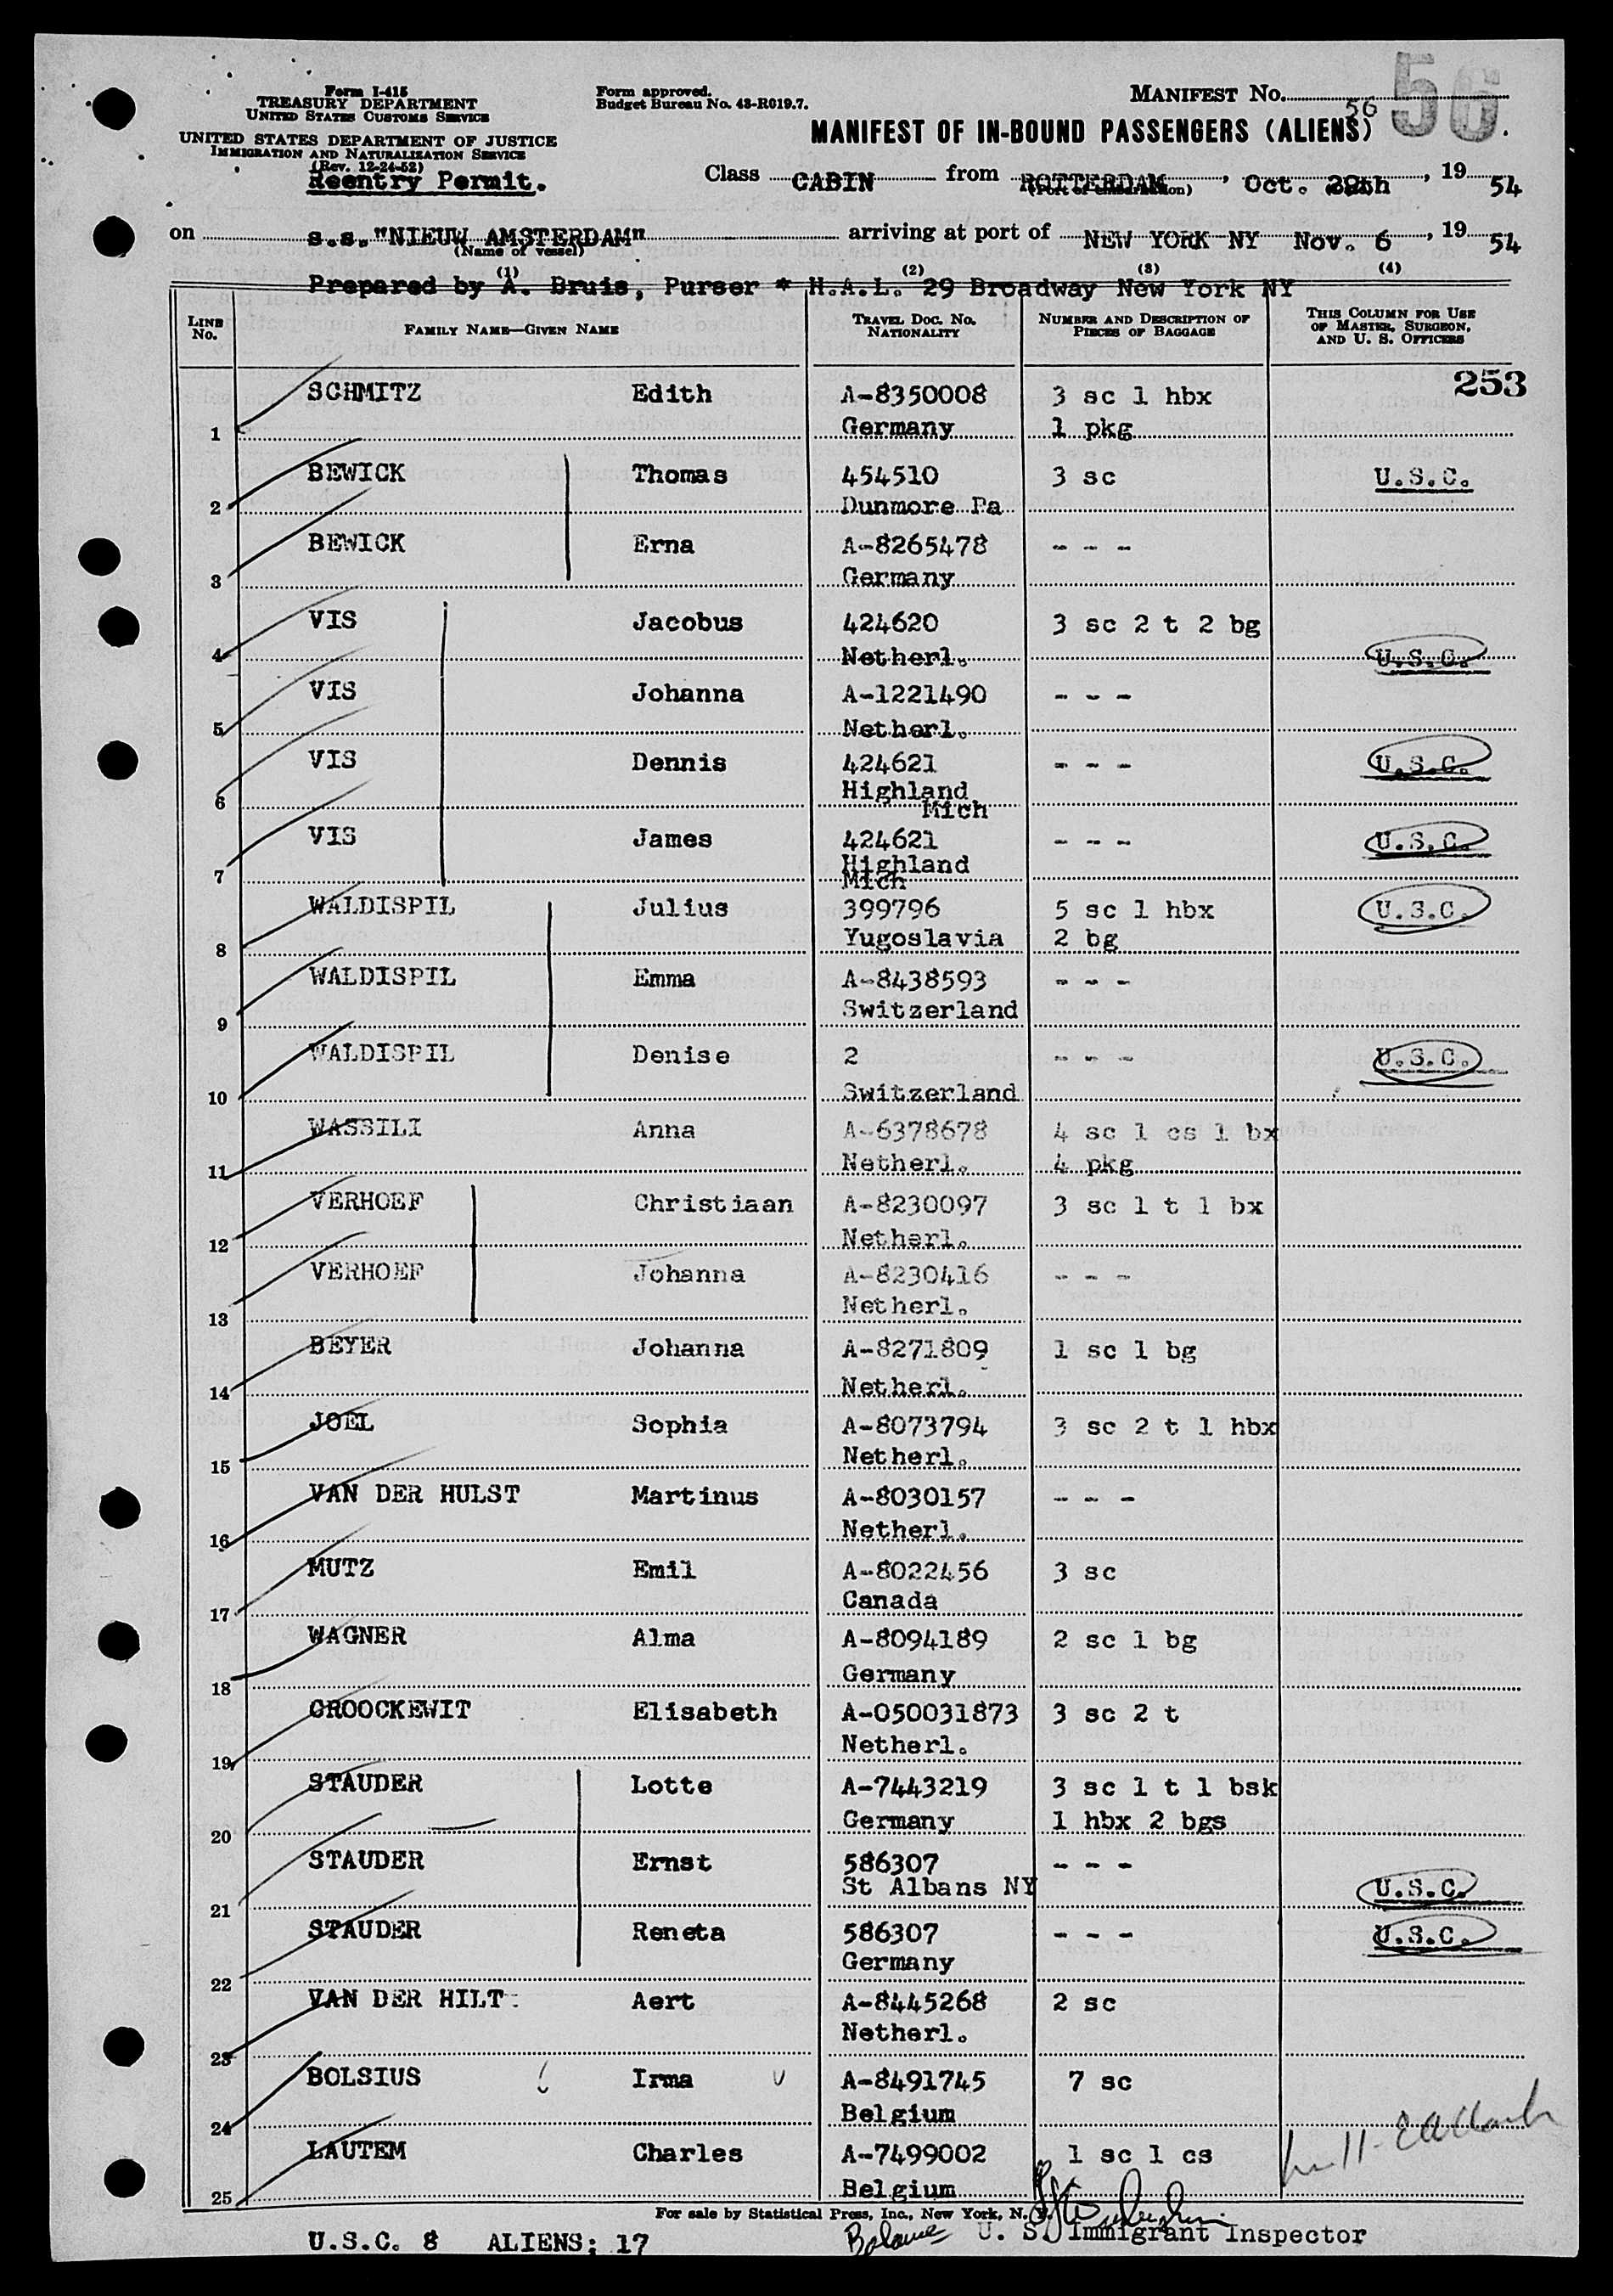 Form I-415
TREASURY DEPARTMENT
UNITED STATES CUSTOMS SERVICE
UNITED STATES DEPARTMENT OF JUSTICE
IMMIGRATION AND NATURALIZATION SERVICE
(Rev. 12-24-52)
Reentry Permit.
Form approved.
Budget Bureau No. 43-R019.7.
MANIFEST No. 56
56
MANIFEST OF IN-BOUND PASSENGERS (ALIENS)
Class CABIN from ROTTERDAM, Oct. 29th, 19 54
(Port of embarkation)
on s.s."NIEUW AMSTERDAM" arriving at port of NEW YORK NY Nov. 6, 19 54
(Name of vessel)
(1) (2) (3) (4)
Prepared by A. Bruis, Purser * H.A.L. 29 Broadway New York NY
LINE No. FAMILY NAME—GIVEN NAME TRAVEL DOC. NO. NATIONALITY NUMBER AND DESCRIPTION OF PIECES OF BAGGAGE THIS COLUMN FOR USE OF MASTER, SURGEON, AND U. S. OFFICERS
253
SCHMITZ Edith A-8350008 3 sc 1 hbx
1 Germany 1 pkg
BEWICK Thomas 454510 3 sc U.S.C.
2 Dunmore Pa
BEWICK Erna A-8265478 - - -
3 Germany
VIS Jacobus 424620 3 sc 2 t 2 bg
4 Netherl. U.S.C.
VIS Johanna A-1221490 - - -
5 Netherl.
VIS Dennis 424621 - - - U.S.C.
6 Highland Mich
VIS James 424621 - - - U.S.C.
7 Highland Mich
WALDISPIL Julius 399796 5 sc 1 hbx U.S.C.
8 Yugoslavia 2 bg
WALDISPIL Emma A-8438593 - - -
9 Switzerland
WALDISPIL Denise 2 - - - U.S.C.
10 Switzerland
WASSILI Anna A-6378678 4 sc 1 cs 1 bx
11 Netherl. 4 pkg
VERHOEF Christiaan A-8230097 3 sc 1 t 1 bx
12 Netherl.
VERHOEF Johanna A-8230416 - - -
13 Netherl.
BEYER Johanna A-8271809 1 sc 1 bg
14 Netherl.
JOEL Sophia A-8073794 3 sc 2 t 1 hbx
15 Netherl.
VAN DER HULST Martinus A-8030157 - - -
16 Netherl.
MUTZ Emil A-8022456 3 sc
17 Canada
WAGNER Alma A-8094189 2 sc 1 bg
18 Germany
GROOCKEWIT Elisabeth A-050031873 3 sc 2 t
19 Netherl.
STAUDER Lotte A-7443219 3 sc 1 t 1 bsk
20 Germany 1 hbx 2 bgs
STAUDER Ernst 586307 - - -
21 St Albans NY U.S.C.
STAUDER Reneta 586307 - - - U.S.C.
22 Germany
VAN DER HILT Aert A-8445268 2 sc
23 Netherl.
BOLSIUS Irma A-8491745 7 sc
24 Belgium
LAUTEM Charles A-7499002 1 sc 1 cs
25 Belgium
For sale by Statistical Press, Inc., New York, N. Y.
U.S.C. 8 ALIENS: 17 U. S. Immigrant Inspector